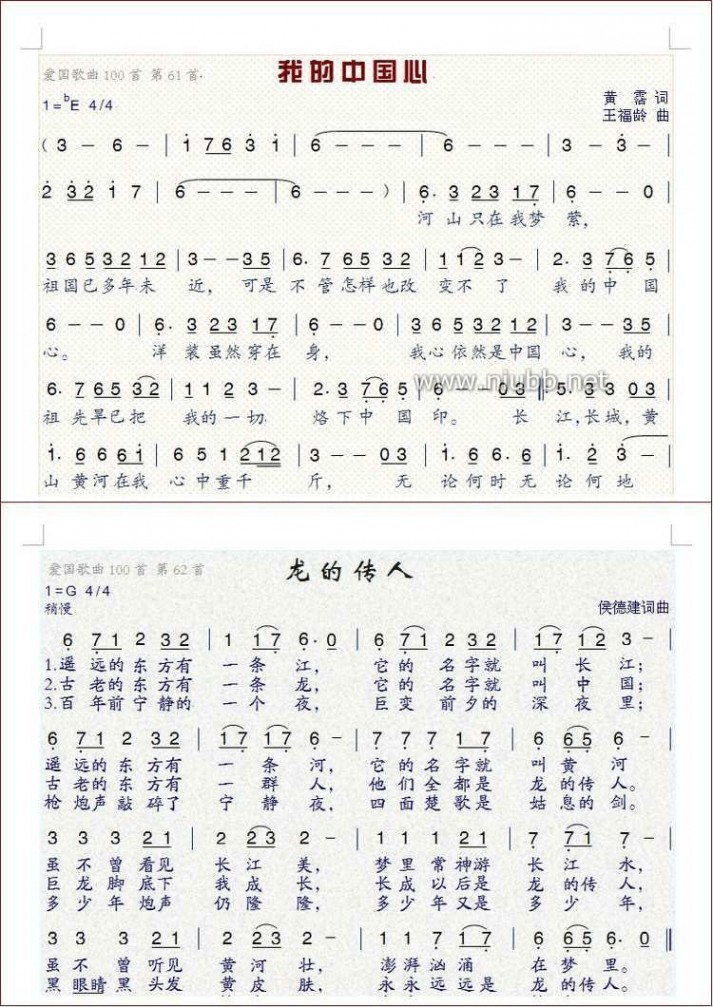 爱国歌曲100首 第61首
我的中国心
1=bE 4/4
黄霑 词
王福龄 曲
( 3 - 6 - | 1 7 6 3 1 | 6 - - - | 6 - - - | 3 - 3 - |
2 3 2 1 7 | 6 - - - | 6 - - - ) | 6. 3 2 3 1 7 | 6 - - 0 |
河山只在我梦萦,
3 6 5 3 2 1 2 | 3 - - 3 5 | 6. 7 6 5 3 2 | 1 1 2 3 - | 2. 3 7 6 5 |
祖国已多年未近,可是不管怎样也改变不了 我的中国
6 - - 0 | 6. 3 2 3 1 7 | 6 - - 0 | 3 6 5 3 2 1 2 | 3 - - 3 5 |
心。 洋装虽然穿在身, 我心依然是中国心,我的
www.niubb.net
6. 7 6 5 3 2 | 1 1 2 3 - | 2. 3 7 6 5 | 6 - - 0 3 ‖ 5. 3 0 3 |
祖先早已把 我的一切 烙下中国印。 长江,长城,黄
1. 6 6 6 1 | 6 5 1 2 1 2 | 3 - - 0 | 1. 6 6. 6 | 1. 2 3 - |
山黄河在我 心中重千斤, 无论何时无论何地
爱国歌曲100首 第62首
龙的传人
1=G 4/4
稍慢
侯德建词曲
6 7 1 2 3 2 | 1 1 7 6. 0 | 6 7 1 2 3 2 | 1 7 1 2 3 - |
1.遥远的东方有 一条江, 它的名字就 叫长江;
2.古老的东方有 一条龙, 它的名字就 叫中国;
3.百年前宁静的 一个夜, 巨变前夕的 深夜里;
6 7 1 2 3 2 | 1 7 1 7 6 - | 7 7 7 1 7 | 6 6 5 6 - |
遥远的东方有 一条河, 它的名字就 叫黄河
古老的东方有 一群人, 他们全都是 龙的传人。
枪炮声敲碎了 宁静夜, 四面楚歌是 姑息的剑。
3 3 3 2 1 | 2 2 3 2 - | 1 1 1 2 1 | 7 7 1 7 - |
虽不曾看见 长江美, 梦里常神游 长江水,
巨龙脚底下 我成长, 长成以后是 龙的传人,
多少年炮声 仍隆隆, 多少年又是 多少年,
3 3 3 2 1 | 2 2 3 2 - | 1 1 7 1 7 | 6 6 5 6. 0 ‖
虽不曾听见 黄河壮, 澎湃汹涌 在梦里。
黑眼睛黑头发 黄皮肤, 永永远远是 龙的传人。